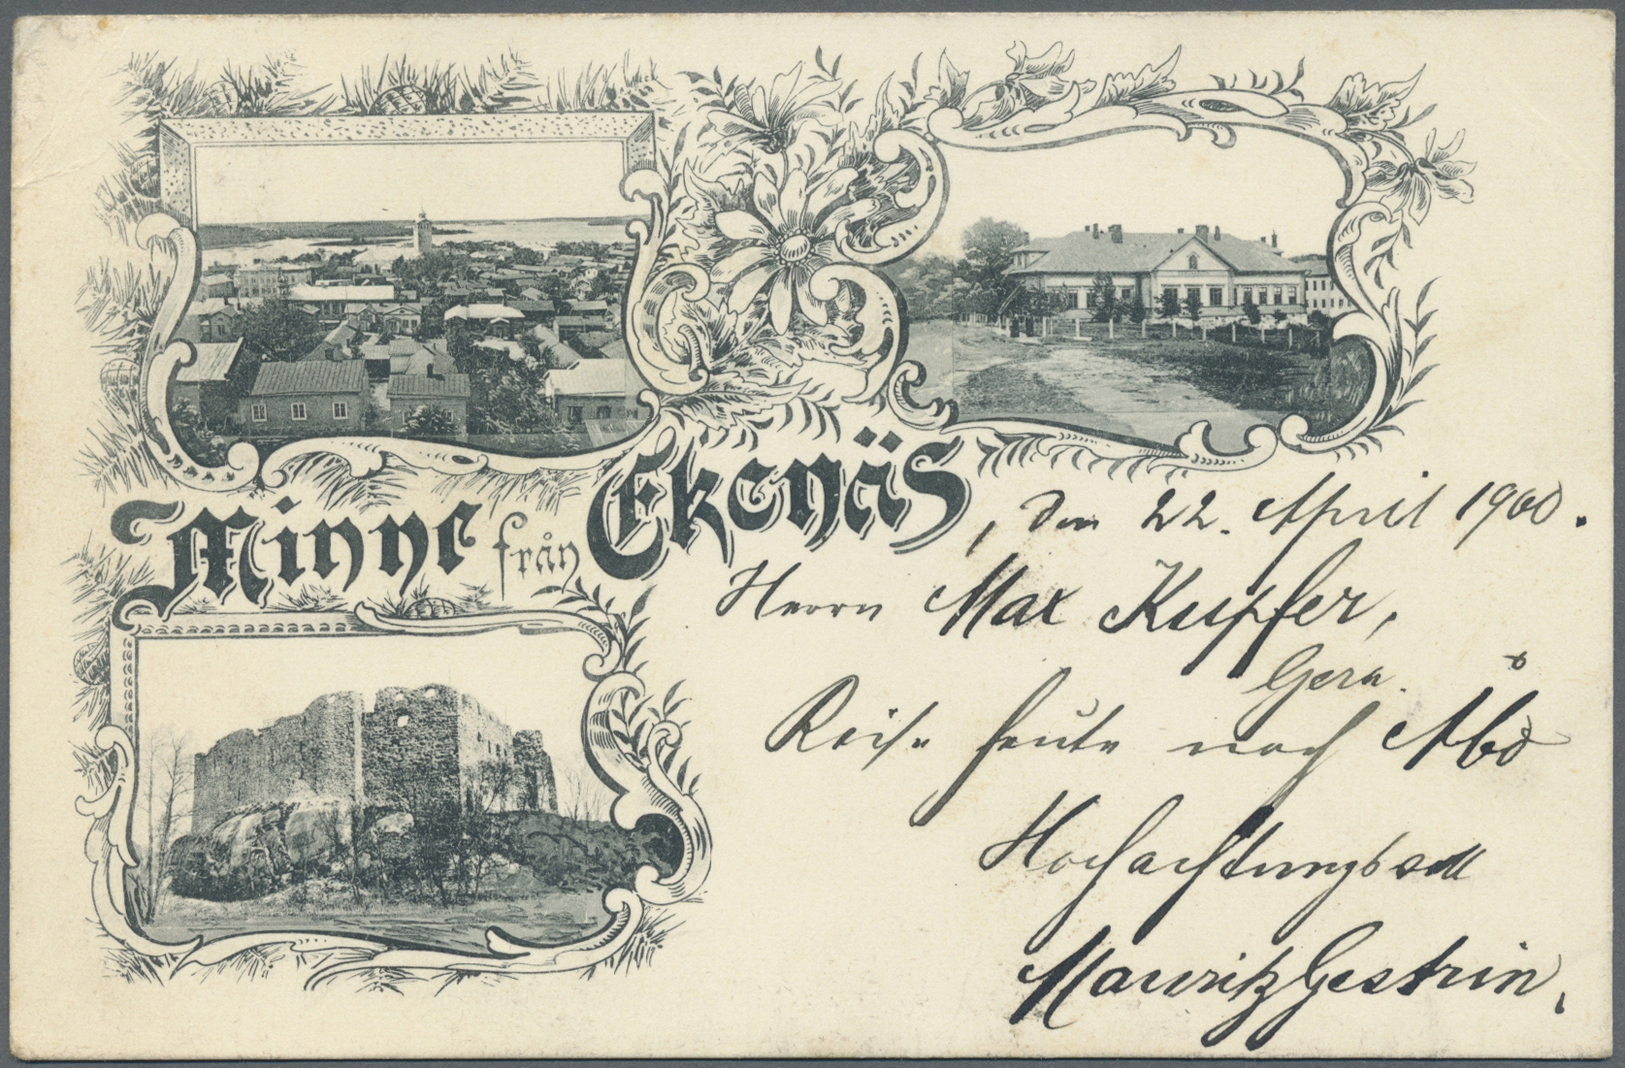 Minne från Ekenäs
, den 22. April 1900.
Herrn Max Kupfer,
Gera.
Reise heute nach Åbo
Hochachtungsvoll
Mauritz Gestrin.